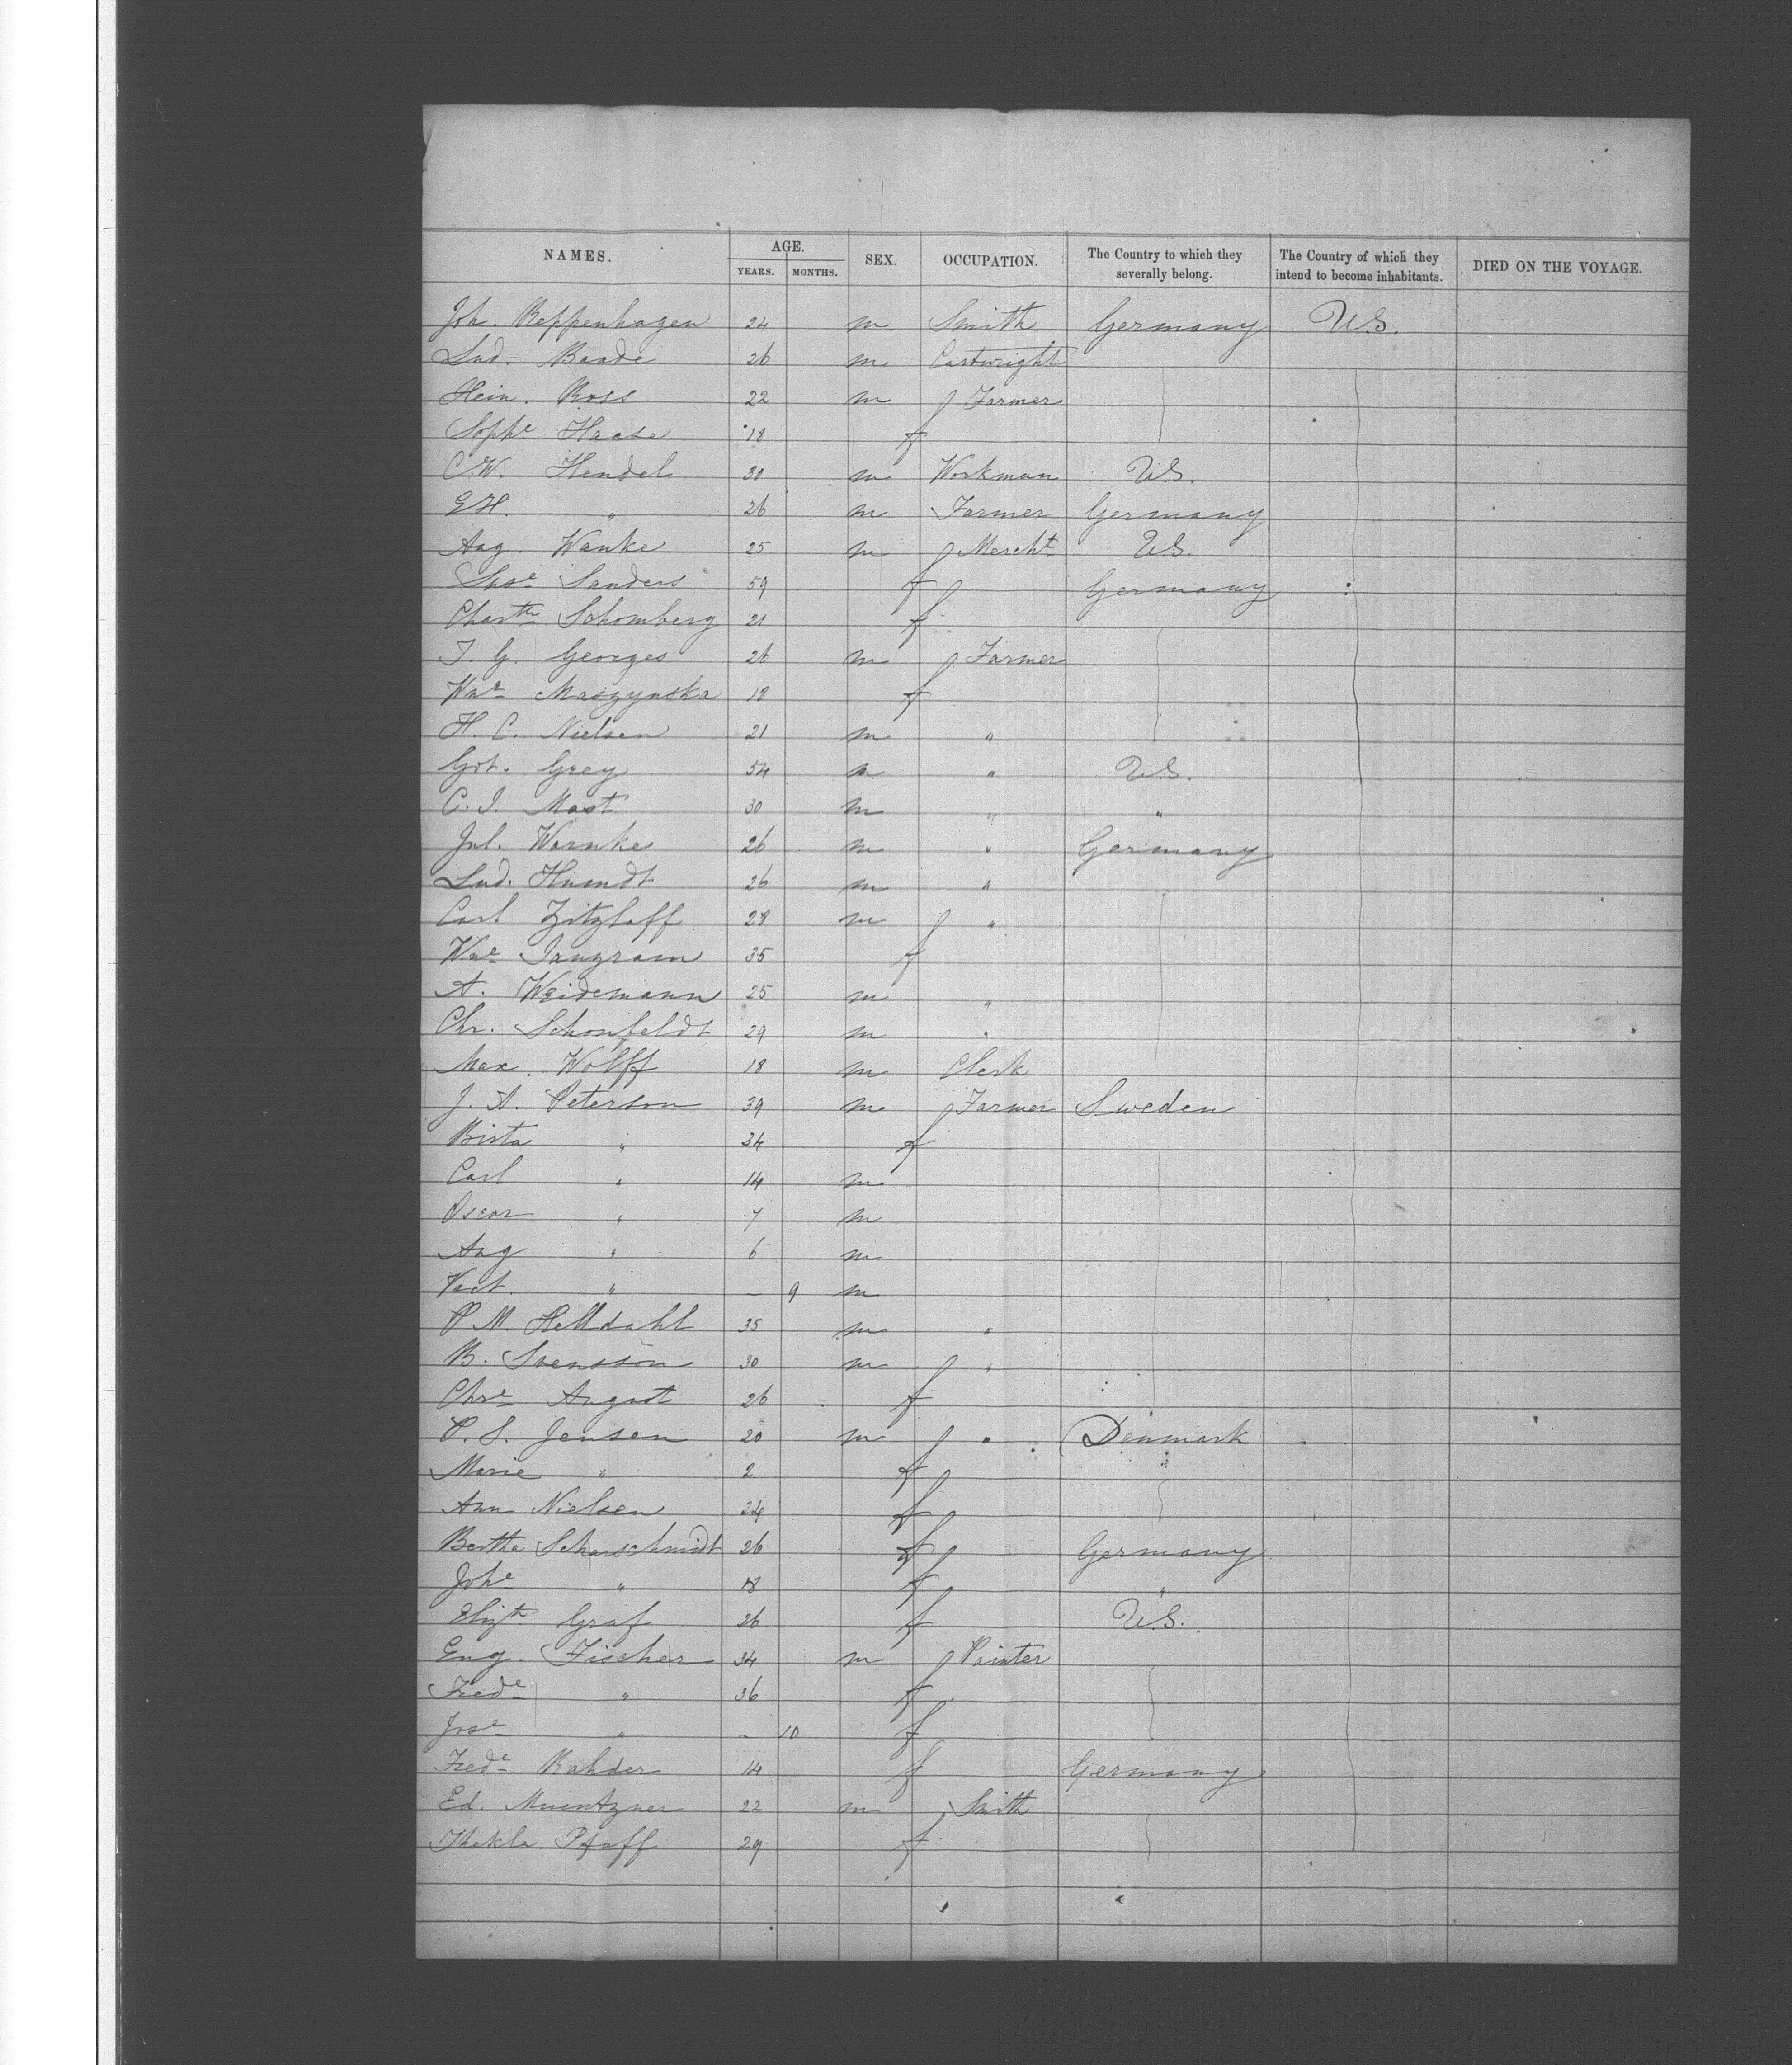 NAMES. AGE. SEX. OCCUPATION. The Country to which they severally belong. The Country of which they intend to become inhabitants. DIED ON THE VOYAGE.
YEARS. MONTHS.
Joh. Reppenhagen 24 m Smith Germany U.S.
Lud. Baade 26 m Cartwright
Hein. Ross 22 m Farmer
Sophe Haase 18 f
C.W. Hendel 30 m Workman U.S.
E.H. " 26 m Farmer Germany
Aug. Wanke 25 m Mercht U.S.
Sanders 59 f Germany
Schomberg 21 f
J. G. Georges 26 m Farmer
Wne Maszynska 18 f
H. C. Nielsen 21 m "
Got. Grey 54 m " U.S.
C. J. Mast 30 m " "
Jul. Warnke 26 m " Germany
Lud. Humdt 26 m "
Carl Zitzlaff 28 m "
Wne 35 f
A. Weidemann 25 m "
Chr. Schonfeldt 29 m "
Max. Wolff 18 m Clerk
J. A. Peterson 39 m Farmer Sweden
Birta " 34 f
Carl " 14 m
Oscar " 7 m
Aug " 6 m
" – 9 m
P. M. Helldahl 35 m "
B. Svensson 30 m "
Chre August 26 f
P. S. Jensen 20 m " Denmark
Marie " 2 f
Ann Nielsen 24 f
Bertha Scharschmidt 26 f Germany
Johe " 18 f "
Elizth Graf 26 f U.S.
Eug. Fischer 34 m Painter
Frede " 36 f
Jose " – 10 f
Frede Rahder 14 f Germany
Ed. Muentzner 22 m Smith
Thekla Pfaff 29 f